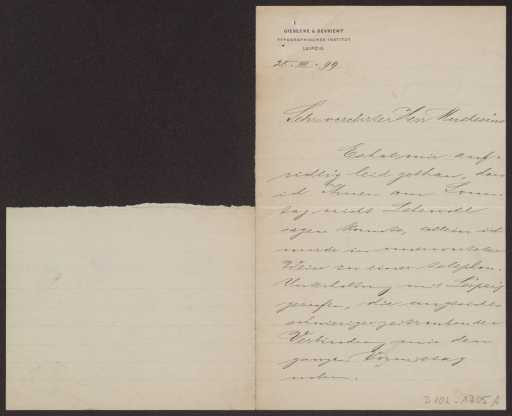 GIESECKE & DEVRIENT
TYPOGRAPHISCHES INSTITUT
LEIPZIG
21. III. 99
Sehr verehrter Herr
Es hat mir auf-
richtig leid gethan, dass
ich Ihnen am Sonn-
tag nicht Lebewohl
sagen konnte, allein ich
wurde in unerwarteter
Weise zu einer telephon.
Unterhaltung mit Leipzig
gerufen, die angesichts
schwieriger zeitraubender
Verbindung mir den
ganzen Vormittag
nahm.